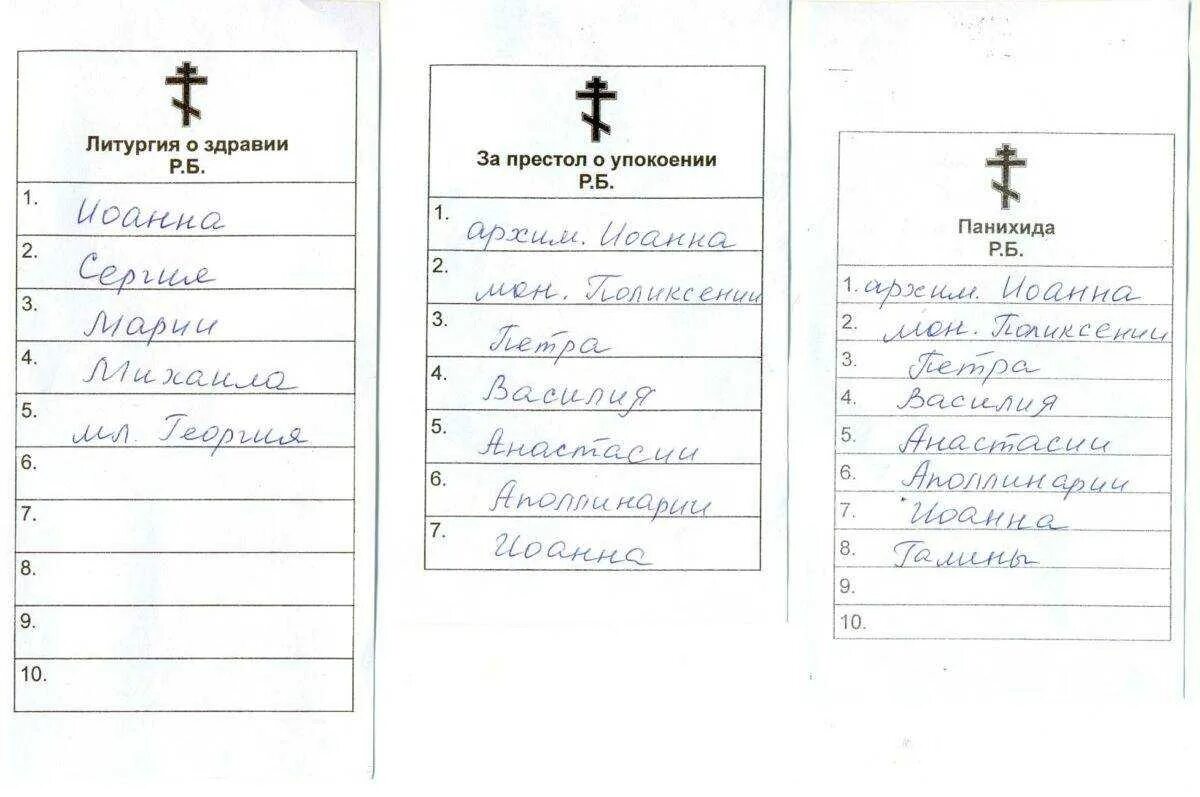 Литургия о здравии
Р.Б.
1. Иоанна
2. Сергия
3. Марии
4. Михаила
5. мл. Георгия
6.
7.
8.
9.
10.
За престол о упокоении
Р.Б.
1. архим. Иоанна
2. мон. Поликсении
3. Петра
4. Василия
5. Анастасии
6. Аполлинарии
7. Иоанна
Панихида
Р.Б.
1. архим. Иоанна
2. мон. Поликсении
3. Петра
4. Василия
5. Анастасии
6. Аполлинарии
7. Иоанна
8. Галины
9.
10.